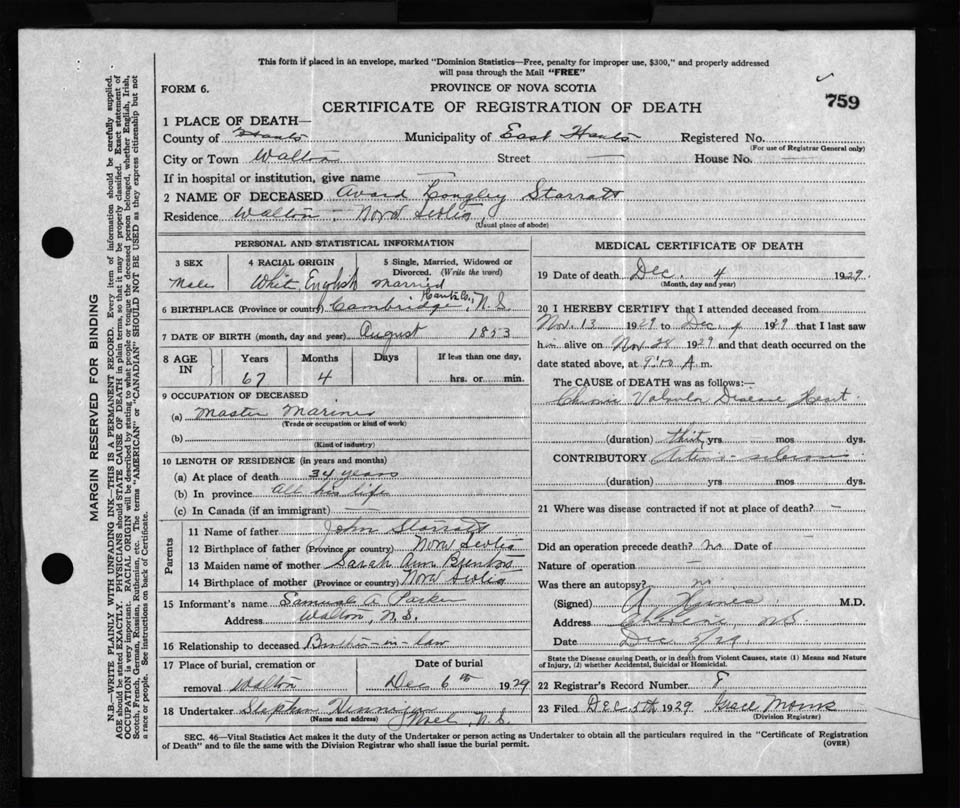 This form if placed in an envelope, marked "Dominion Statistics—Free, penalty for improper use, $300," and properly addressed
will pass through the Mail "FREE"
FORM 6.
PROVINCE OF NOVA SCOTIA
759
CERTIFICATE OF REGISTRATION OF DEATH
1 PLACE OF DEATH—
County of Hants Municipality of East Hants Registered No.
(For use of Registrar General only)
City or Town Walton Street — House No. —
If in hospital or institution, give name —
2 NAME OF DECEASED Avard Longley Starratt
Residence Walton - Nova Scotia
(Usual place of abode)
PERSONAL AND STATISTICAL INFORMATION
3 SEX
4 RACIAL ORIGIN
5 Single, Married, Widowed or
Divorced. (Write the word)
Male White English Married
6 BIRTHPLACE (Province or country) Cambridge, Hants Co., N.S.
7 DATE OF BIRTH (month, day and year) August 1853
8 AGE
IN
Years Months Days If less than one day,
67 4 hrs. or min.
9 OCCUPATION OF DECEASED
(a) Master Mariner
(Trade or occupation or kind of work)
(b)
(Kind of industry)
10 LENGTH OF RESIDENCE (in years and months)
(a) At place of death 34 years
(b) In province All his life
(c) In Canada (if an immigrant) —
Parents
11 Name of father John Starratt
12 Birthplace of father (Province or country) Nova Scotia
13 Maiden name of mother Sarah Ann
14 Birthplace of mother (Province or country) Nova Scotia
15 Informant's name Samuel A Parker
Address Walton, N.S.
16 Relationship to deceased Brother-in-law
17 Place of burial, cremation or
removal Walton
Date of burial
Dec 6th 1929
18 Undertaker Stephen
(Name and address) Noel, N.S.
MEDICAL CERTIFICATE OF DEATH
19 Date of death Dec. 4 1929.
(Month, day and year)
20 I HEREBY CERTIFY that I attended deceased from
Nov. 13 1929 to Dec. 4 1929 that I last saw
him alive on Nov 28 1929 and that death occurred on the
date stated above, at A. m.
The CAUSE OF DEATH was as follows:—
Chronic Valvular Disease Heart
(duration) thirty yrs. mos dys.
CONTRIBUTORY Arterio-sclerosis
(duration) yrs. mos. dys.
21 Where was disease contracted if not at place of death? —
Did an operation precede death? no Date of —
Nature of operation —
Was there an autopsy? no
(Signed) M.D.
Address N.S.
Date Dec 5/29
State the Disease causing Death, or in death from Violent Causes, state (1) Means and Nature
of Injury, (2) whether Accidental, Suicidal or Homicidal.
22 Registrar's Record Number
23 Filed Dec 5th 1929 Grace Morris
(Division Registrar)
SEC. 46—Vital Statistics Act makes it duty of the Undertaker or person acting as Undertaker to obtain all the particulars required in the "Certificate of Registration
of Death" and to file the same with the Division Registrar who shall issue the burial permit.
(OVER)
MARGIN RESERVED FOR BINDING
N.B—WRITE PLAINLY WITH UNFADING INK—THIS IS A PERMANENT RECORD. Every item of information should be carefully supplied.
AGE should be stated EXACTLY. PHYSICIANS should STATE CAUSE OF DEATH in plain terms, so that it may be properly classified. Exact statement of
OCCUPATION is very important. RACIAL ORIGIN will be described by stating to what people or tongue the deceased person belonged, whether English, Irish,
Scotch, French, German, Russian, Ruthenian, etc. The terms "AMERICAN" or "CANADIAN" SHOULD NOT BE USED as they express citizenship but not
a race or people. See instructions on back of Certificate.